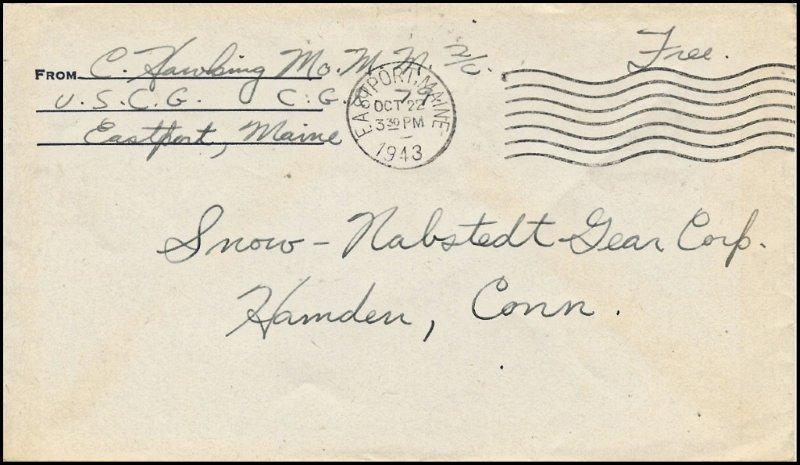 FROM C. Hawking Mo. M. M. 2/c. Free.
U.S.C.G. C.G.
Eastport, Maine
EASTPORT, MAINE
OCT 22
3 30 PM
1943
Snow-Nabstedt Gear Corp.
Hamden, Conn.